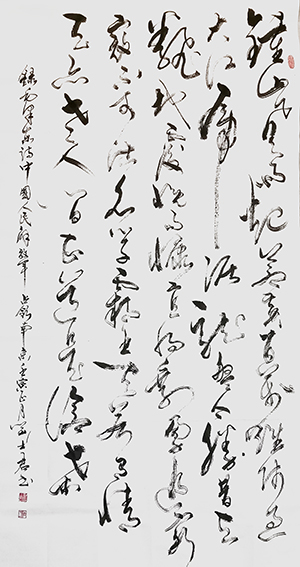 鐘山風雨起蒼黃百萬雄師過
大江虎踞龍盤今勝昔天
翻地覆慨而慷宜將剩勇追窮
寇不可沽名學霸王天若有情
天亦老人間正道是滄桑
錄毛澤東詩中國人民解放軍占領南京壬寅正月士君書